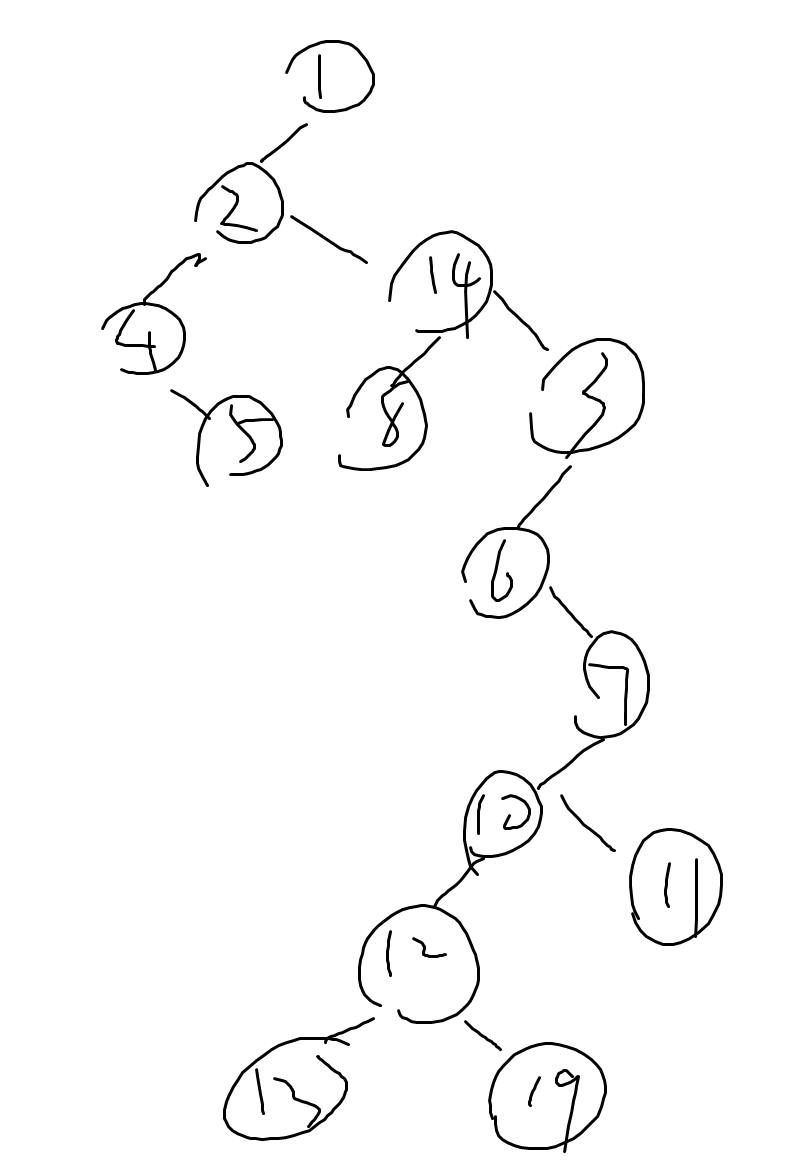 1
2
14
4
3
5
8
6
7
10
11
12
13
19